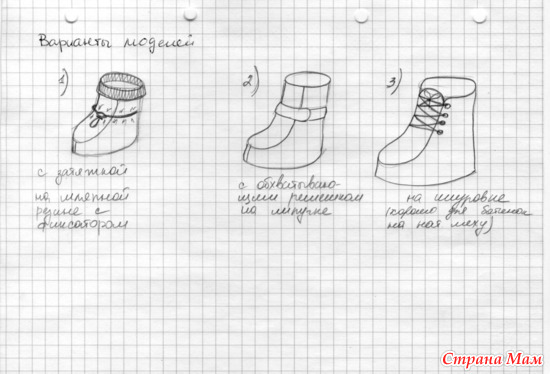 Варианты моделей
1)
с затяжкой
на шляпной
резине с
фиксатором
2)
с обхватываю-
щим ремешком
на липучке
3)
на шнуровке
(хорошо для ботинок
на нат меху)
Страна Мам